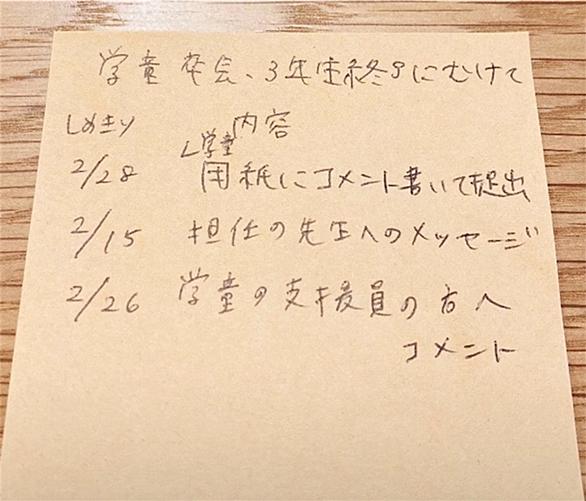 学童 卒会、3年生終りにむけて
しめきり 内容
2/28 学童 用紙にコメント書いて提出
2/15 担任の先生へのメッセージ
2/26 学童の支援員の方へ
コメント